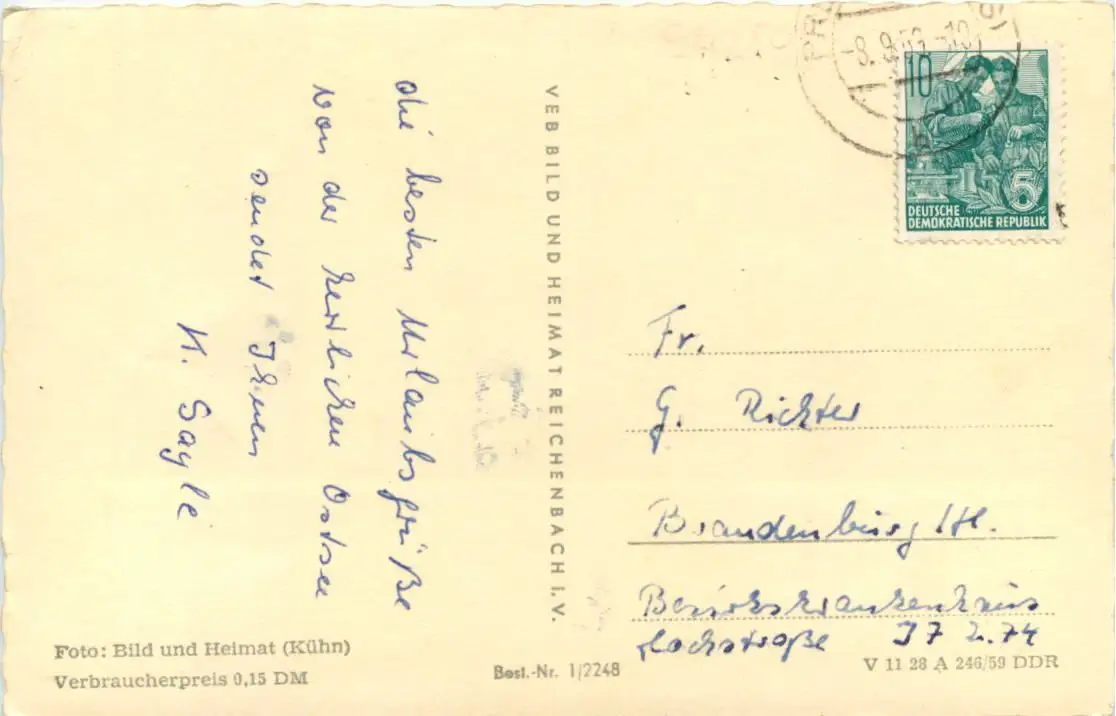 die besten Urlaubsgrüße
von der herrlichen Ostsee
sendet Ihnen
K. Sagle
VEB BILD UND HEIMAT REICHENBACH I. V.
-8.9.59-10
b
10
5
DEUTSCHE
DEMOKRATISCHE REPUBLIK
Fr.
G. Richter
Brandenburg /H.
Bezirkskrankenhaus
Hochstraße
Foto: Bild und Heimat (Kühn)
Verbraucherpreis 0,15 DM
Best.-Nr. 1/2248
V 11 28 A 246/59 DDR